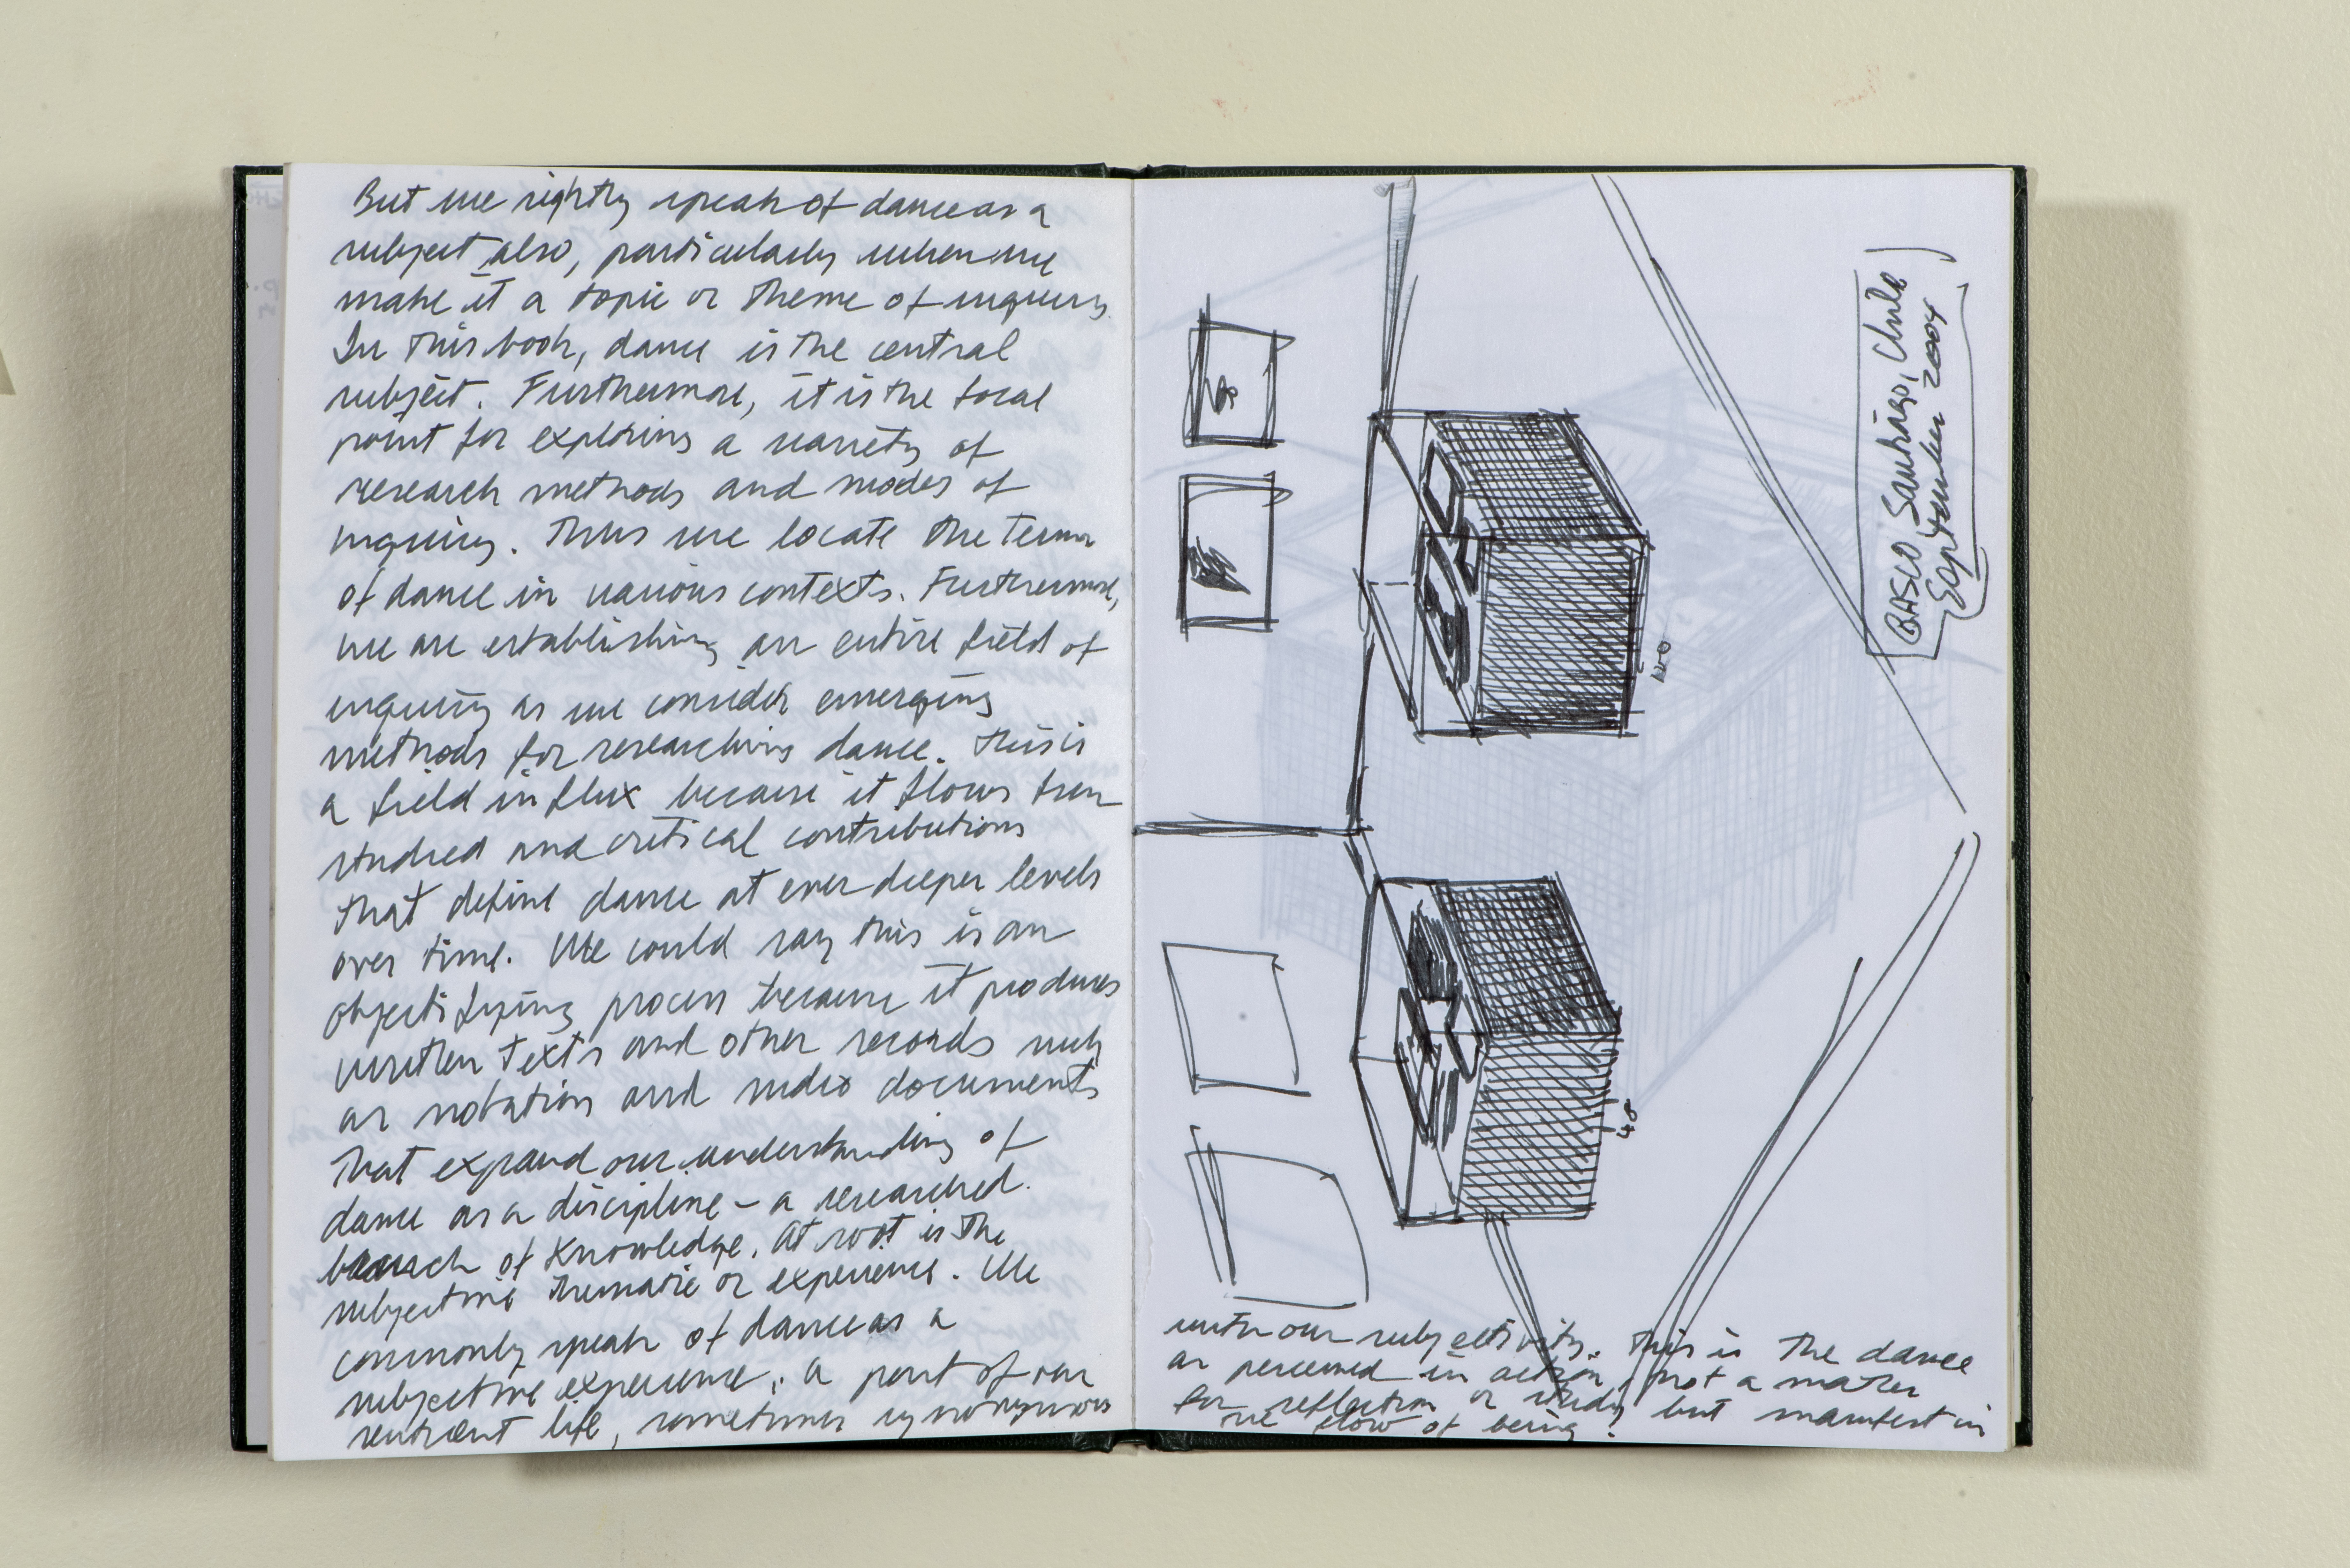 But we rightly speak of dance as a
subject also, particularly when we
make it a topic or theme of inquiry.
In this book, dance is the central
subject. Furthermore, it is the focal
point for exploring a variety of
research methods and modes of
inquiry. Thus we locate the terms
of dance in various contexts. Furthermore,
we are establishing an entire field of
inquiry as we consider emerging
methods for researching dance. This is
a field in flux because it flows from
studied and critical contributions
that define dance at ever deeper levels
over time. We could say this is an
objectifying process because it produces
written texts and other records such
as notation and video documents
that expand our understanding of
dance as a discipline – a researched
branch of knowledge. At root is the
subjective thematic or experience. We
commonly speak of dance as a
subjective experience; a part of our
sentient life, sometimes synonymous
BASCO Santiago, Chile
September 2004
48
with our subjectivity. This is the dance
as perceived in action, not a matter
for reflection or study, but manifest in
the flow of being.